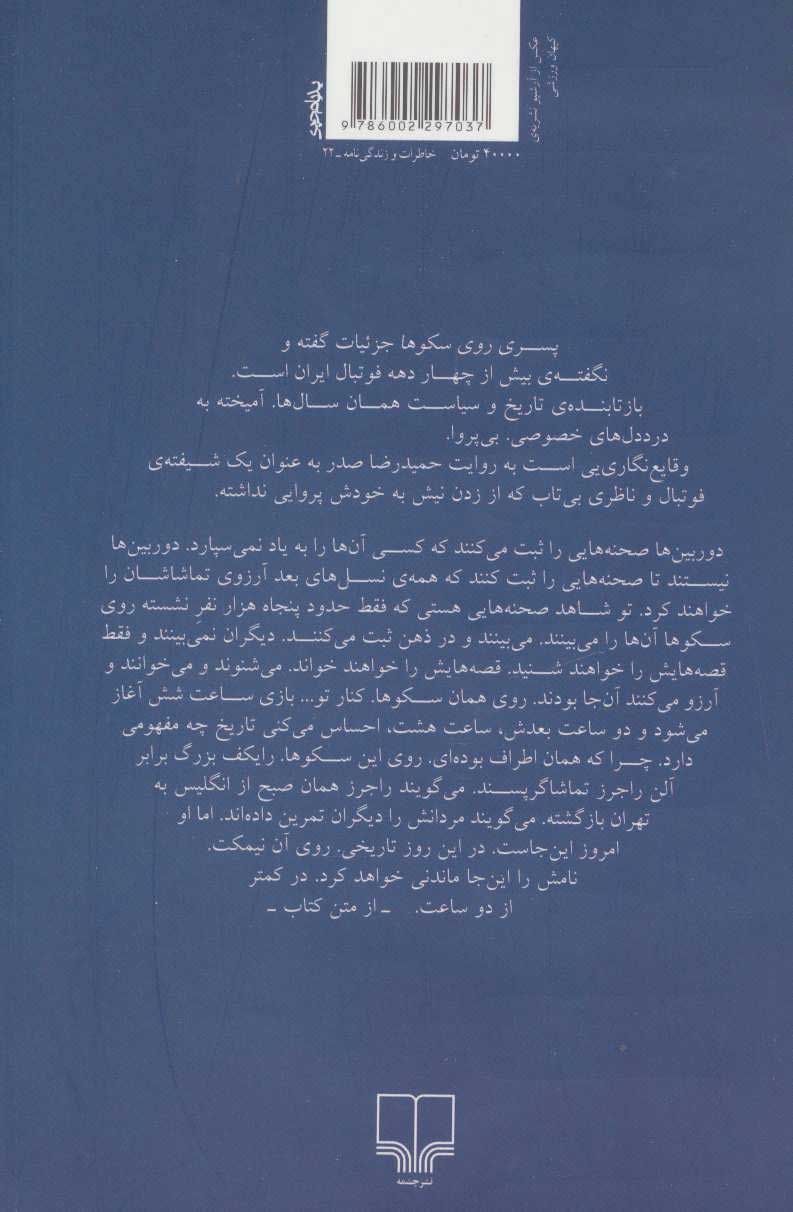 عکس از آرشیو نشریه‌ی
کیهان ورزشی
9 786002 297037
۴۰۰۰۰ تومان خاطرات و زندگی‌نامه ـ ۲۲
پسری روی سکوها جزئیات گفته و
نگفته‌ی بیش از چهار دهه فوتبال ایران است.
بازتابنده‌ی تاریخ و سیاست همان سال‌ها. آمیخته به
درددل‌های خصوصی. بی‌پروا.
وقایع‌نگاری‌یی است به روایت حمیدرضا صدر به عنوان یک شیفته‌ی
فوتبال و ناظری بی‌تاب که از زدن نیش به خودش پروایی نداشته.
دوربین‌ها صحنه‌هایی را ثبت می‌کنند که کسی آن‌ها را به یاد نمی‌سپارد. دوربین‌ها
نیستند تا صحنه‌هایی را ثبت کنند که همه‌ی نسل‌های بعد آرزوی تماشاشان را
خواهند کرد. تو شاهد صحنه‌هایی هستی که فقط حدود پنجاه هزار نفرِ نشسته روی
سکوها آن‌ها را می‌بینند. می‌بینند و در ذهن ثبت می‌کنند. دیگران نمی‌بینند و فقط
قصه‌هایش را خواهند شنید. قصه‌هایش را خواهند خواند. می‌شنوند و می‌خوانند و
آرزو می‌کنند آن‌جا بودند. روی همان سکوها. کنار تو... بازی ساعت شش آغاز
می‌شود و دو ساعت بعدش، ساعت هشت، احساس می‌کنی تاریخ چه مفهومی
دارد. چرا که همان اطراف بوده‌ای. روی این سکوها. رایکف بزرگ برابر
آلن راجرز تماشاگرپسند. می‌گویند راجرز همان صبح از انگلیس به
تهران بازگشته. می‌گویند مردانش را دیگران تمرین داده‌اند. اما او
امروز این‌جاست. در این روز تاریخی. روی آن نیمکت.
نامش را این‌جا ماندنی خواهد کرد. در کمتر
از دو ساعت. ـ از متن کتاب ـ
نشرچشمه